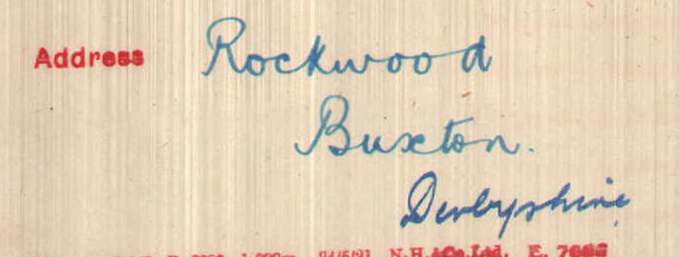 Address Rockwood
Buxton.
Derbyshire
N.H.&Co.Ltd. E.